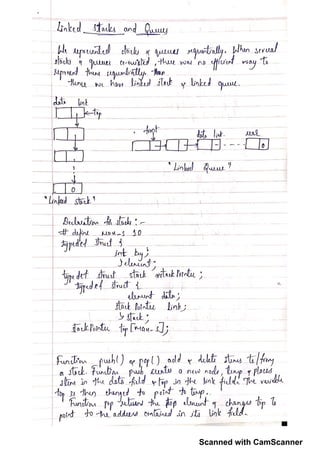 Linked Stacks and Queues
We represented stacks & queues sequentially. When several
stacks & queues co-existed, there was no efficient way to
represent them sequentially.
Hence we have linked stack & linked queue.
data link
top
front
data link
rear
0
"Linked Queue"
0
"Linked Stack"
Declaration for stacks :-
# define MAX-S 10
typedef struct {
int key;
} element;
typedef struct stack *stack Pointer ;
typedef struct {
element data;
stack Pointer link;
} stack;
stack Pointer top [max-s];
Function push() & pop(). add & delete items to/from
a stack. Function push creates a new node, temp & places
item in the data field & top in the link field. The variable
top is then changed to point to temp.
Function pop returns the top element & changes top to
point to the address contained in its link field.
Scanned with CamScanner